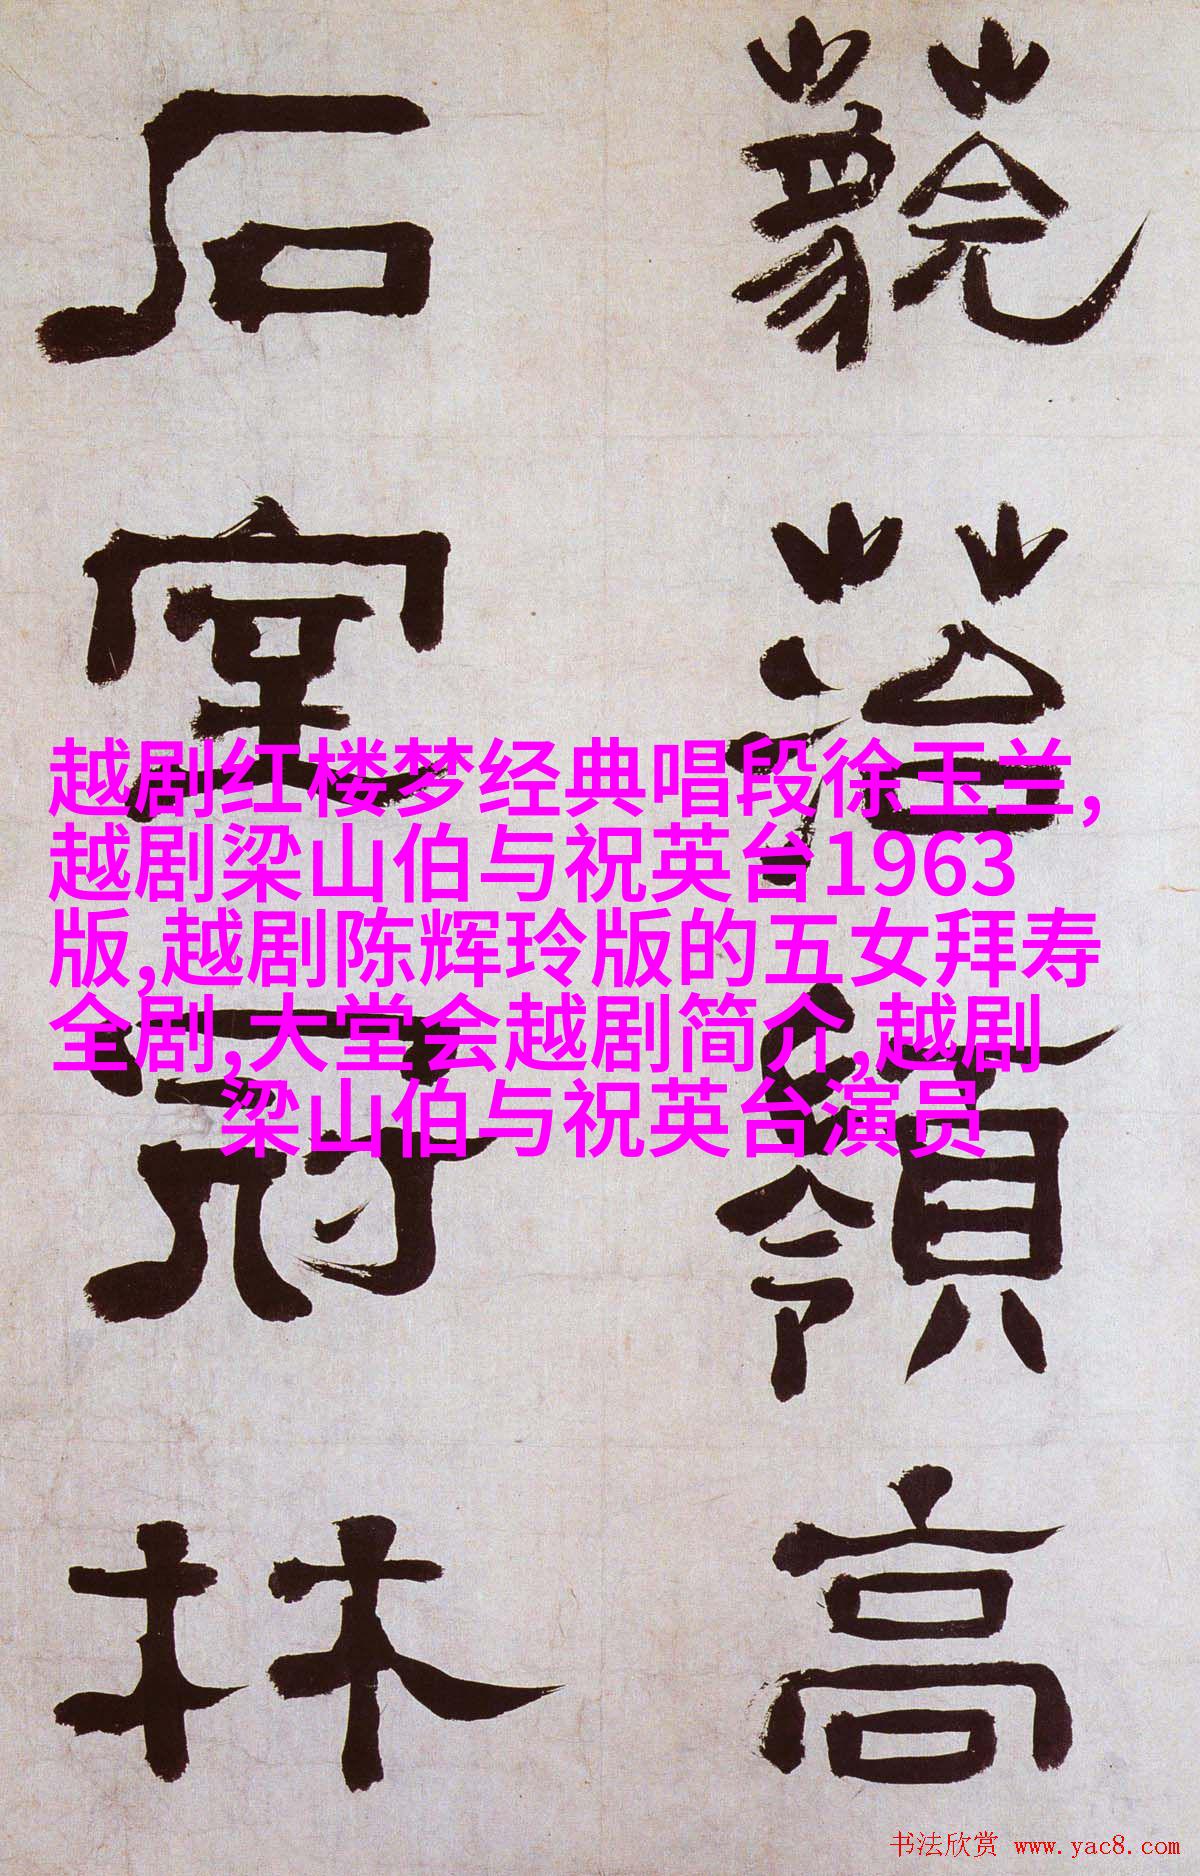 藐菇嶺高
石室冠林
越剧红楼梦经典唱段徐玉兰,
越剧梁山伯与祝英台1963
版,越剧陈辉玲版的五女拜寿
全剧,大堂会越剧简介,越剧
梁山伯与祝英台演员
书法欣赏 www.yac8.com